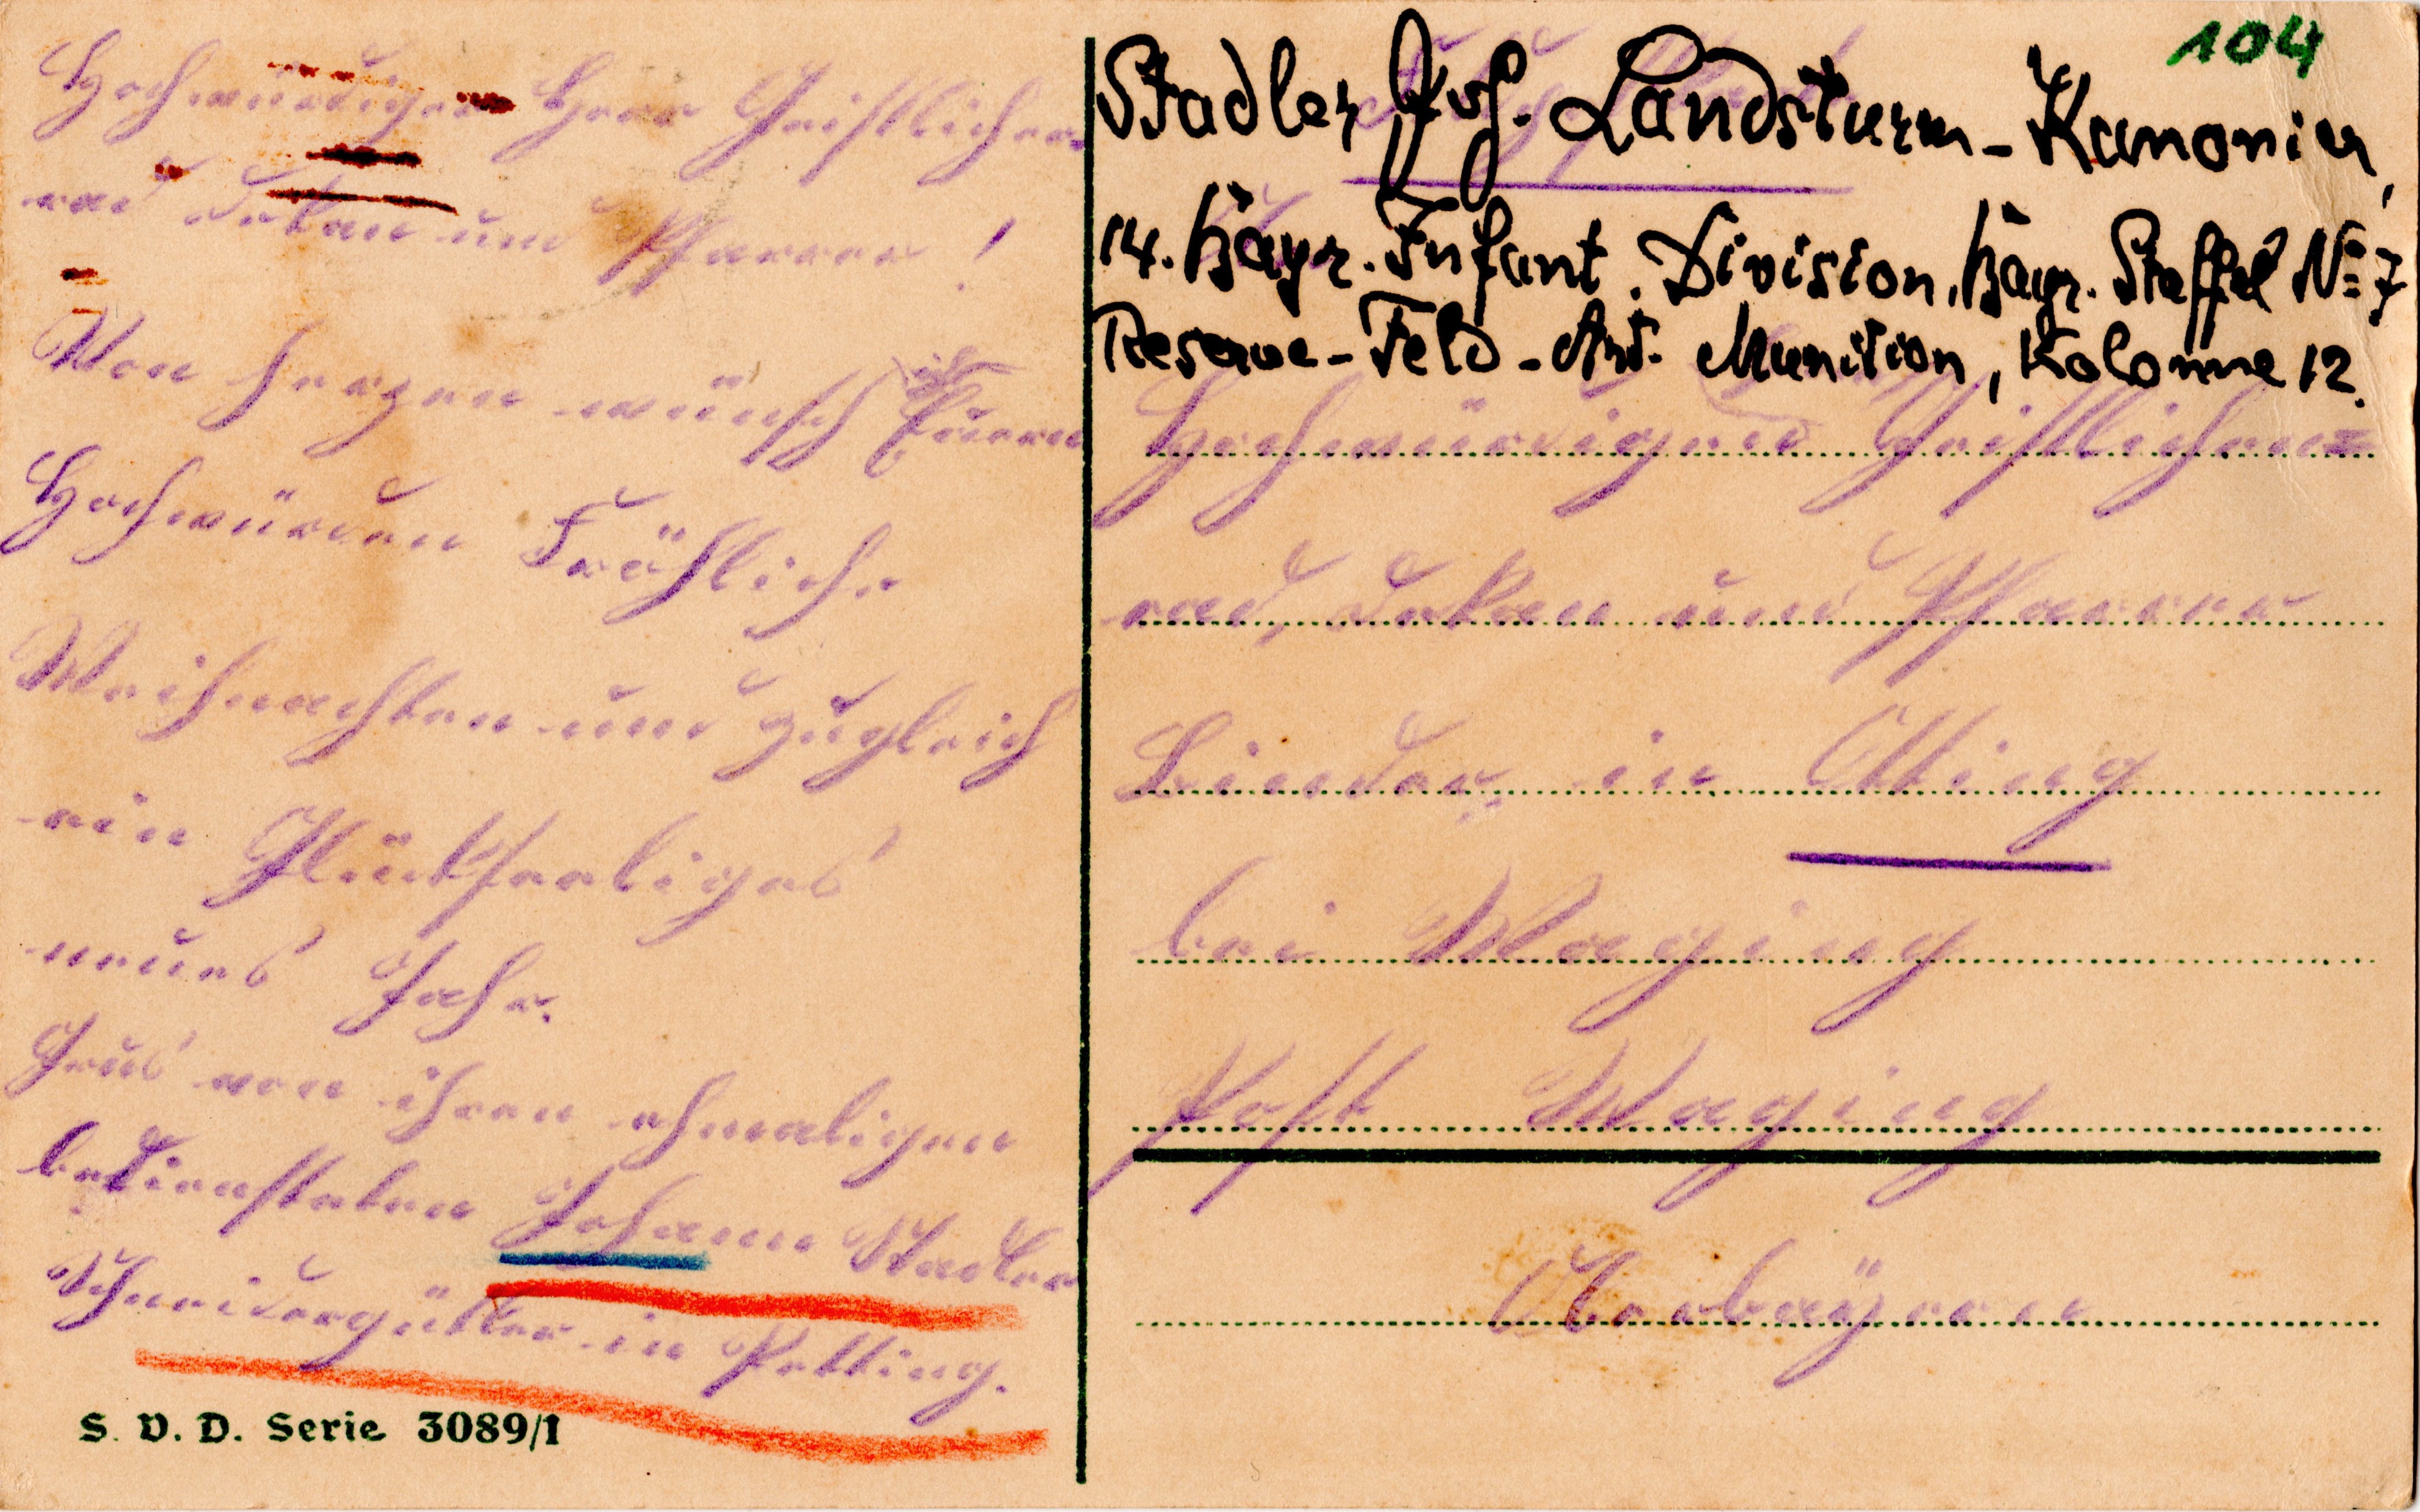 Hochwürdigen Herr Geistlicher-
rad Dekan und Pfarrer!
Von herzen wünsch ich Euren
Hochwürden Fröhliche
Weihnachten und zugleich
ein Glückseeliges
neues Jahr.
Grus von ihren ehmaligen
bediensteten Johann Stadler
Schneidergütler in Petting.
S. V. D. Serie 3089/1
104
Stadler Joh. Landsturm-Kanonier,
14. Bayr. Infant. Division, Bayr. Staffel No 7
Reserve-Feld-Art. Munition, Kolonne 12.
Hochwürdigen Geistlichen=
rad, Dekan und Pfarrer
Linder, in Otting
bei Waging
Post Waging
Oberbayern